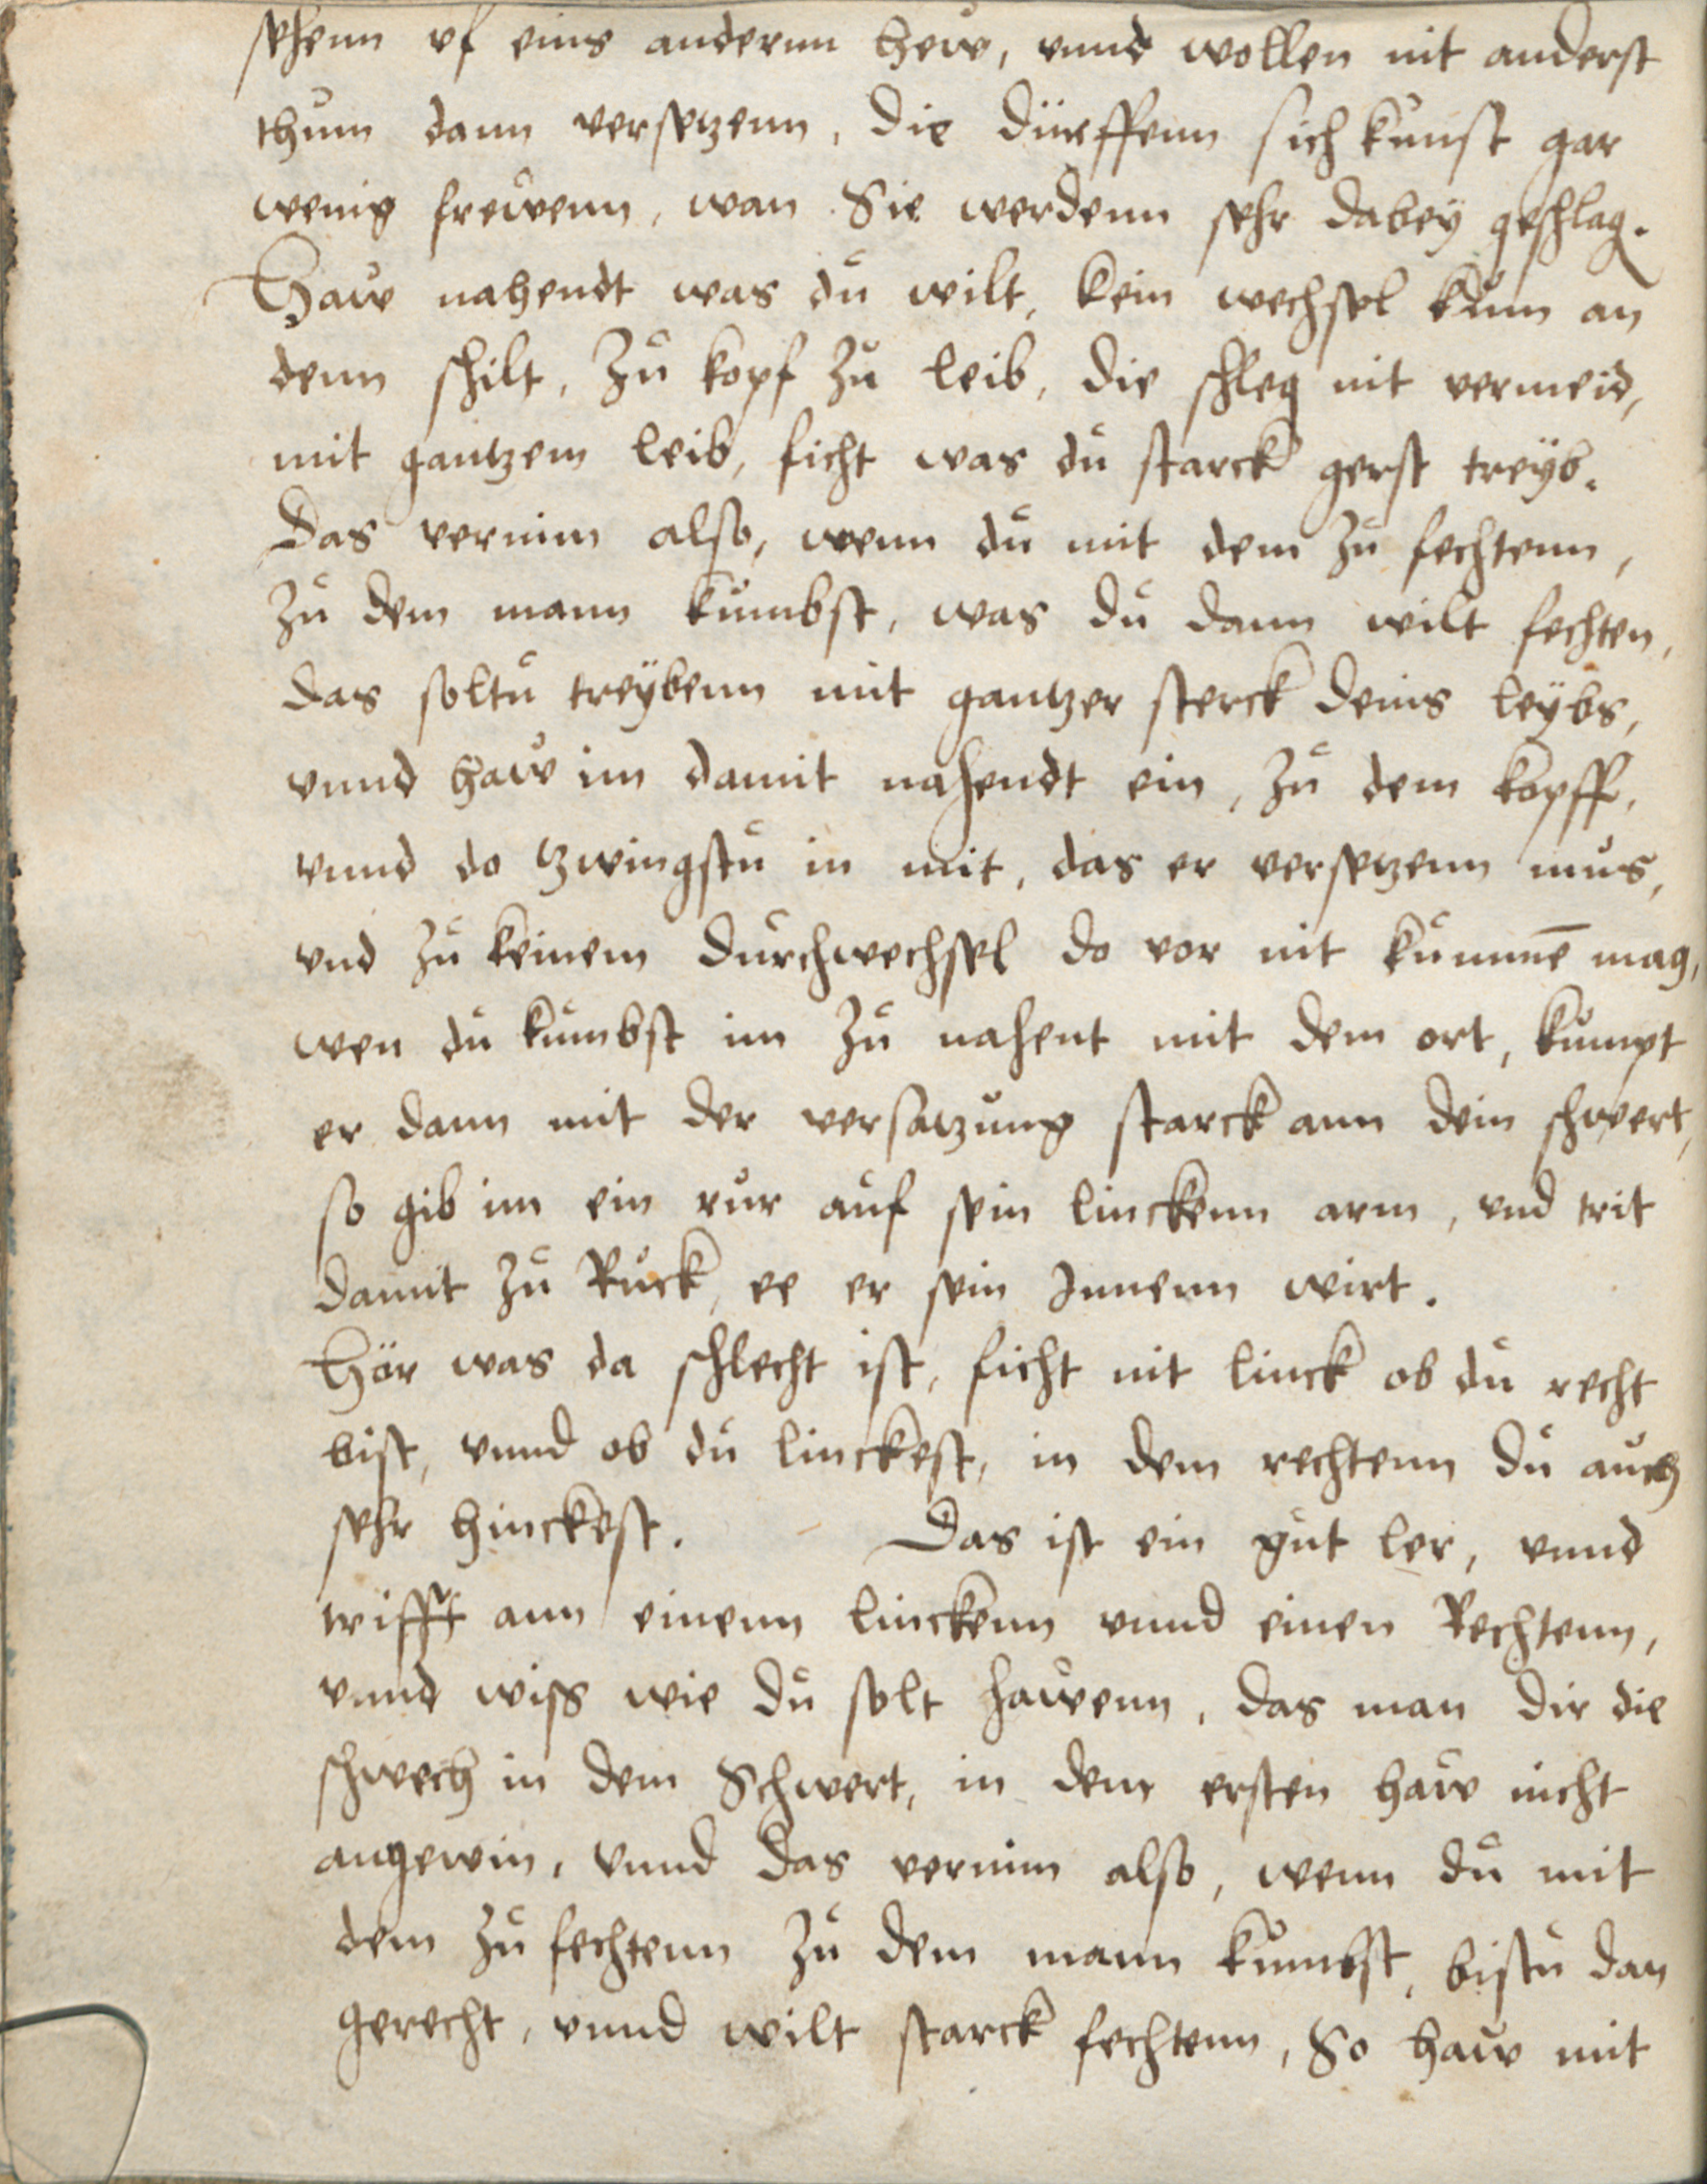 sehenn vf eins anderrnn hew, vnnd wollen nit anderst
thum dann versetzenn, die dürffenn sich kunst gar
wenig frewenn, wan Sie werdenn sehr dabey geschlag.
Haw nahendt was du wilt, kein wechsel kum an
denn schilt, Zu kopf Zu leib, die schleg nit vermeid,
mit gantzem leib, ficht was du starck gerst treyb.
Das vernim also, wenn du mit dem zu fechtenn,
Zu dem mann kumbst, was du dann wilt fechten,
das soltu treÿbenn mit gantzer sterck deins leÿbs,
vnnd haw im damit nahendt ein, Zu dem kopff,
vnnd do tzwingstu in mit, das er versetzenn mus,
vnd Zu keinem durchwechsel do vor nit kummē mag,
wen du kumbst im Zu nahent mit dem ort, kumpt
er dann mit der versatzung starck ann dein schwert,
so gib im ein rur auf sein linckenn arm, vnd trit
damit Zu Ruck, ee er sein Innenn wirt.
Hör was da schlecht ist, ficht nit linck ob du recht
bist, vnnd ob du linckest, in dem rechtenn du auch
sehr hinckest. Das ist ein gut ler, vnnd
trifft ann einenn linckenn vnnd einen Rechtenn,
vnnd wiss wie du solt hawenn, das man dir die
schwech in dem Schwert, in dem ersten haw nicht
angewin, vnnd das vernim also, wenn du mit
dem Zu fechtenn Zu dem mann kumbst, bistu dan
gerecht, vnnd wilt starck fechtenn, So haw mit